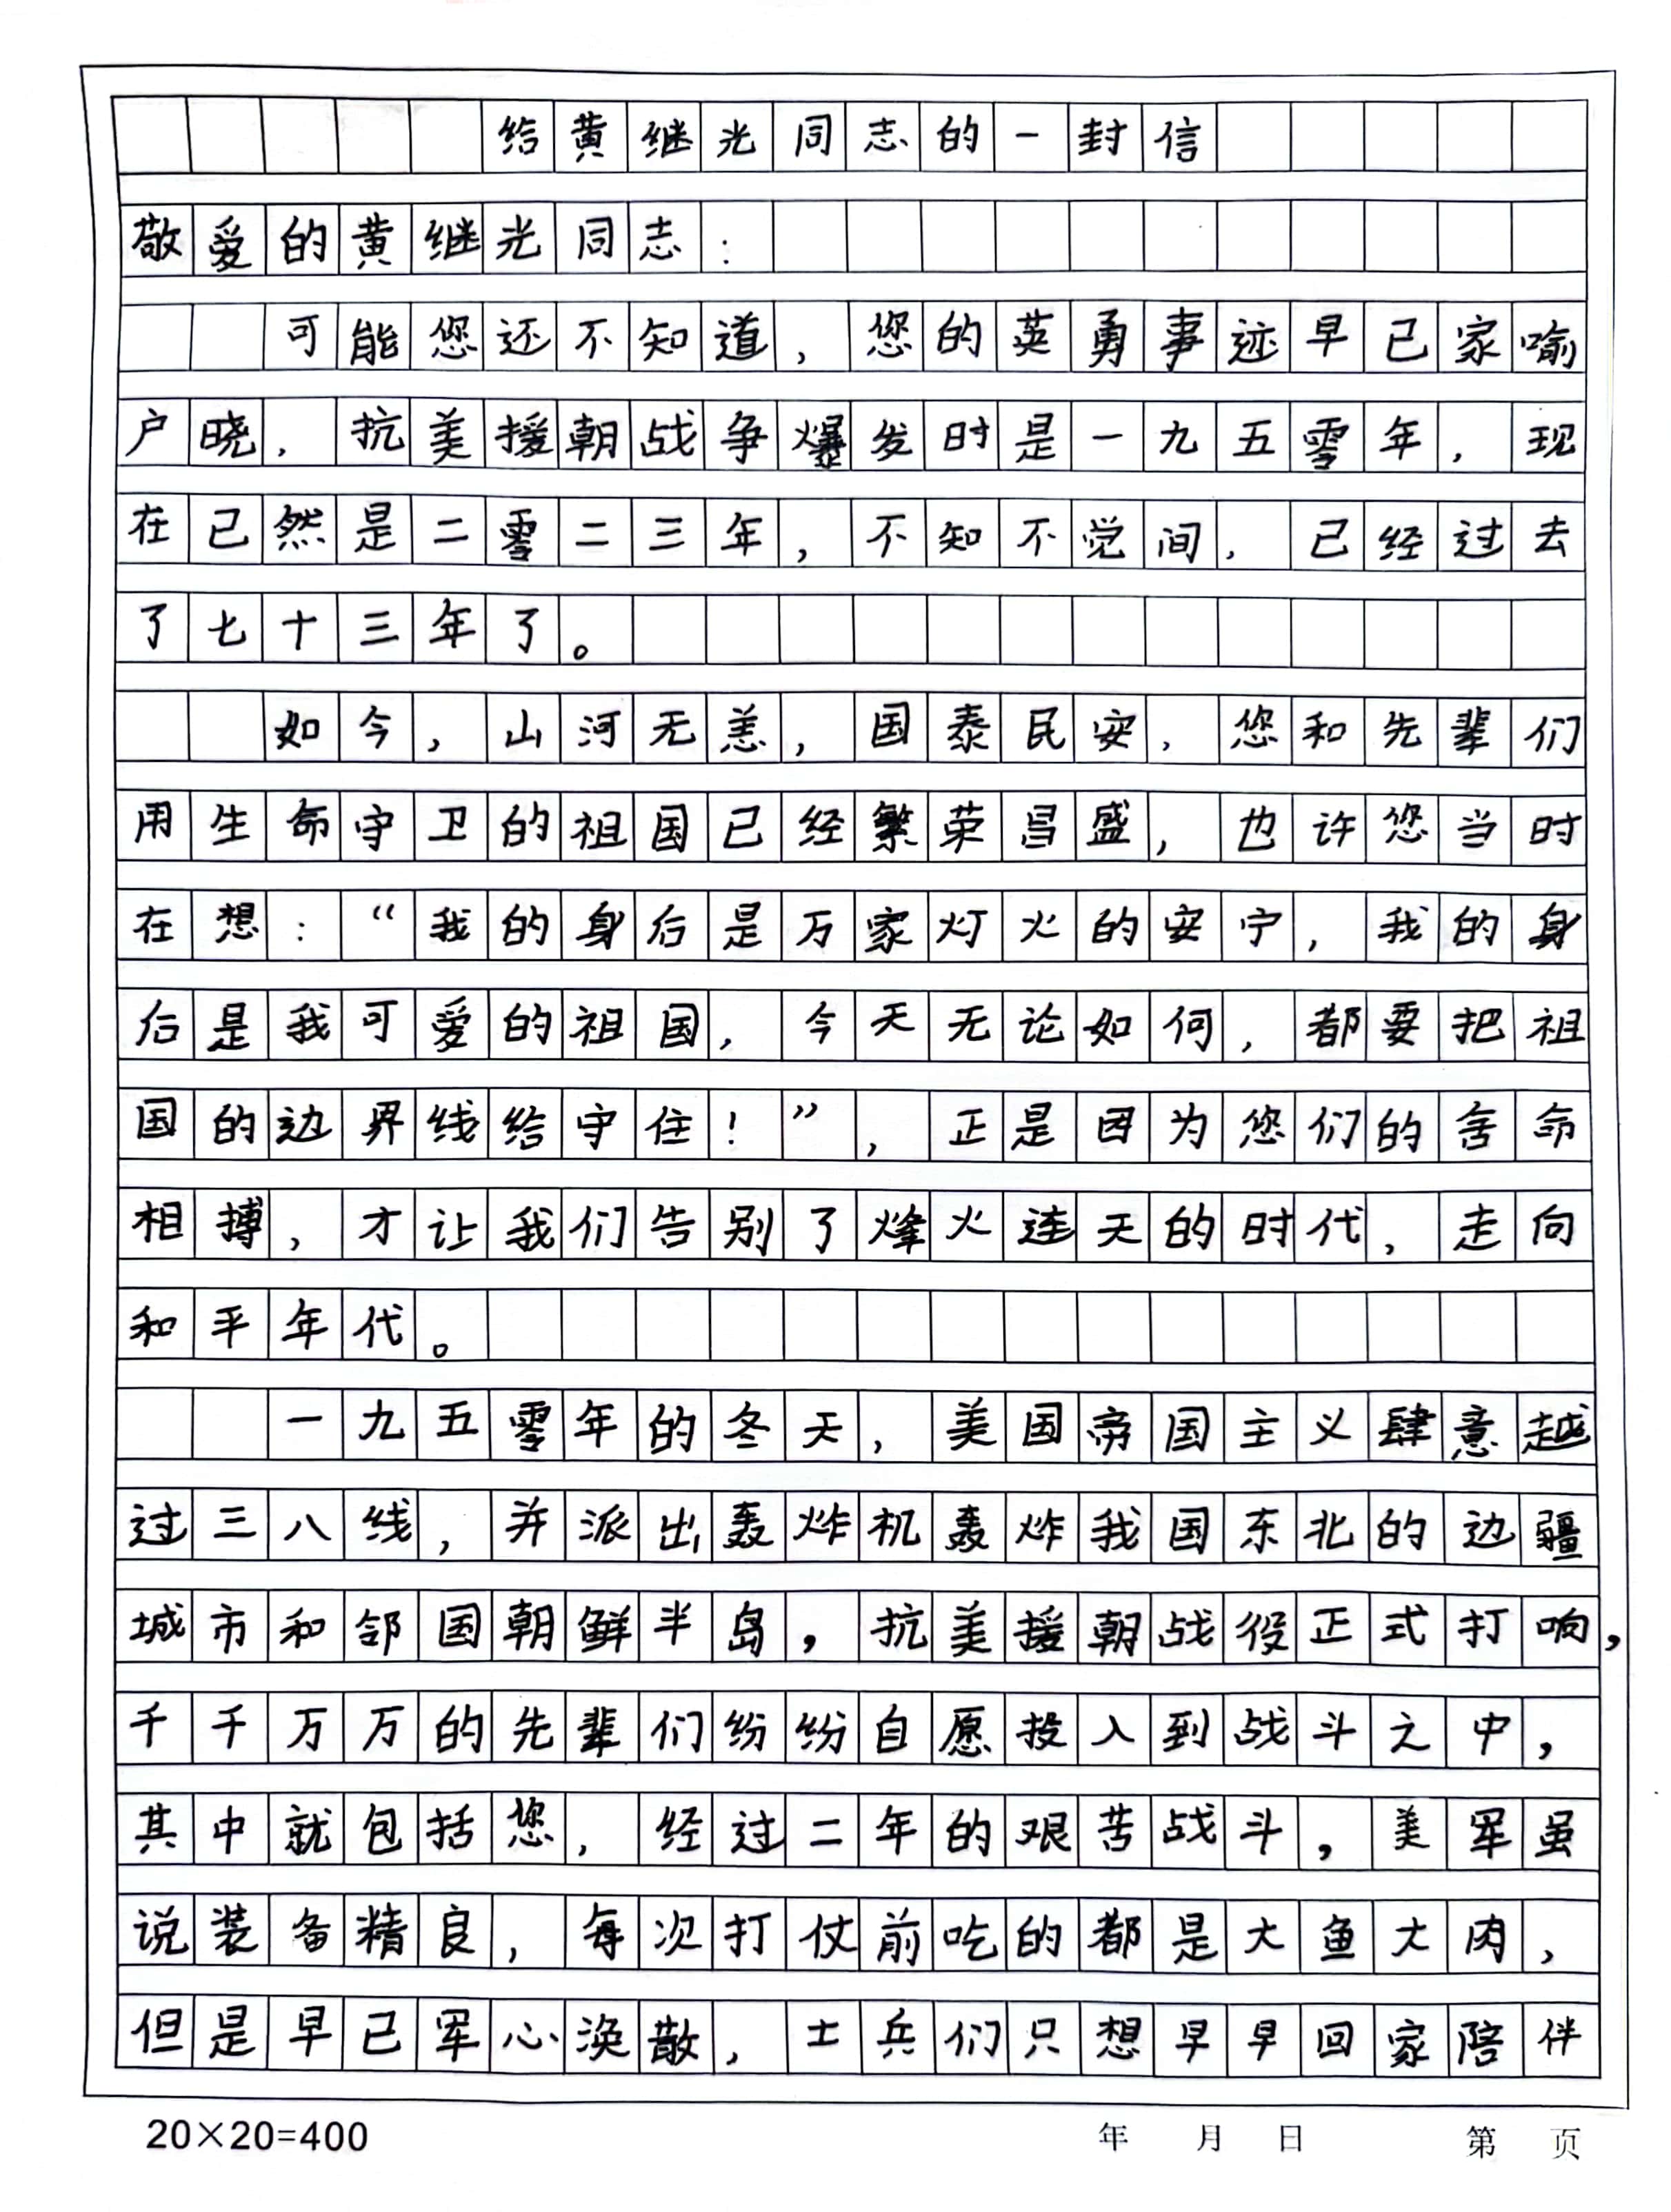 给黄继光同志的一封信
敬爱的黄继光同志：
可能您还不知道，您的英勇事迹早已家喻
户晓，抗美援朝战争爆发时是一九五零年，现
在已然是二零二三年，不知不觉间，已经过去
了七十三年了。
如今，山河无恙，国泰民安，您和先辈们
用生命守卫的祖国已经繁荣昌盛，也许您当时
在想：“我的身后是万家灯火的安宁，我的身
后是我可爱的祖国，今天无论如何，都要把祖
国的边界线给守住！”，正是因为您们的舍命
相搏，才让我们告别了烽火连天的时代，走向
和平年代。
一九五零年的冬天，美国帝国主义肆意越
过三八线，并派出轰炸机轰炸我国东北的边疆
城市和邻国朝鲜半岛，抗美援朝战役正式打响，
千千万万的先辈们纷纷自愿投入到战斗之中，
其中就包括您，经过二年的艰苦战斗，美军虽
说装备精良，每次打仗前吃的都是大鱼大肉，
但是早已军心涣散，士兵们只想早早回家陪伴
20×20=400 年 月 日 第 页